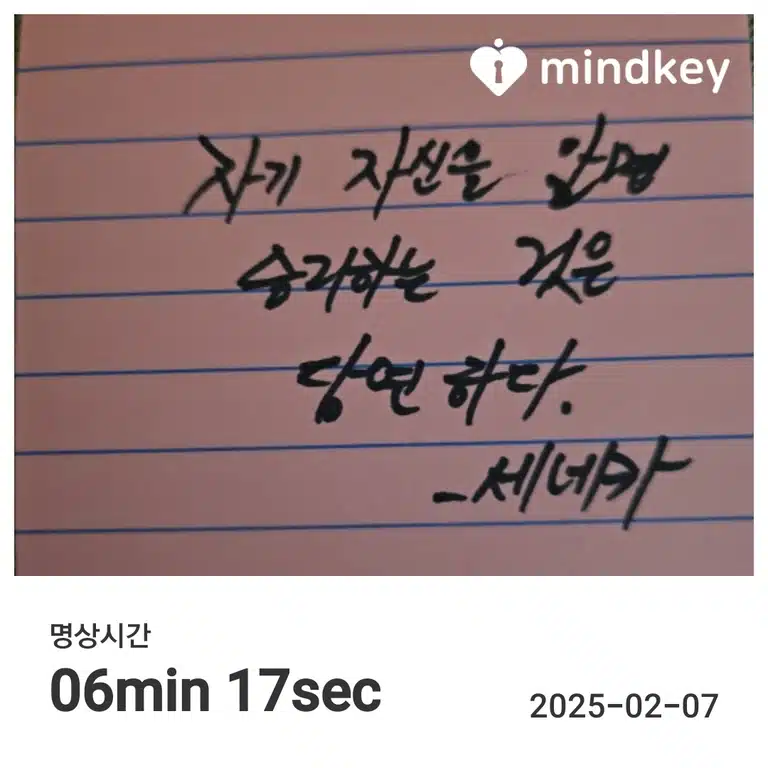 mindkey
자기 자신을 알면
승리하는 것은
당연하다.
-세네카
명상시간
06min 17sec
2025-02-07